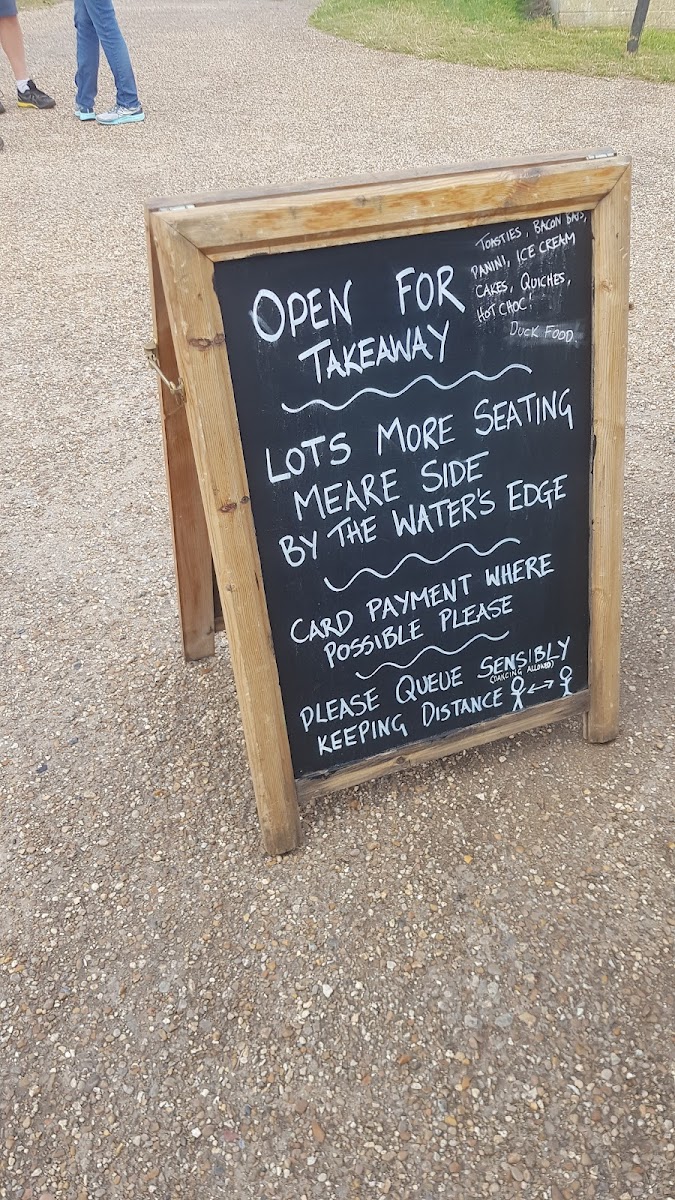 OPEN FOR
TAKEAWAY
TOASTIES, BACON BAPS,
PANINI, ICE CREAM
CAKES, QUICHES,
HOT CHOC!
DUCK FOOD.
LOTS MORE SEATING
MEARE SIDE
BY THE WATER'S EDGE
CARD PAYMENT WHERE
POSSIBLE PLEASE
PLEASE QUEUE SENSIBLY
(DANCING ALLOWED)
KEEPING DISTANCE